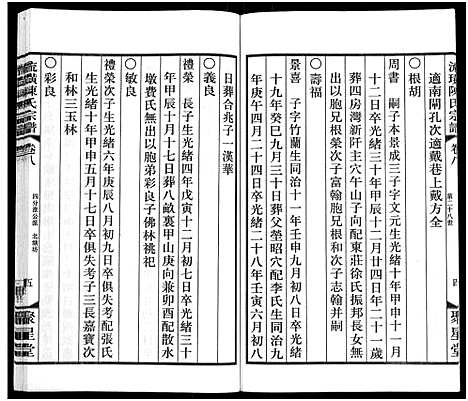 流璜陳氏宗譜
卷八
第二十八世
四
聚星堂
適南閘孔次適戴巷上戴方全
〇根胡
周書 嗣子本景成三子字文元生光緒十年甲申十一月
十二日卒光緒三十年甲辰十二月廿四日年二十一歲
葬四房灣新阡主穴午山子向配東莊徐氏振邦長女無
出以胞兄根榮次子富翰胞弟根和次子志翰并嗣
〇壽福
景喜 子字竹蘭生同治十一年壬申九月初八日卒光緒
十九年癸巳九月三十日葬父塋昭穴配李氏生同治十
年庚午四月二日卒光緒二十八年壬寅六月初八
日葬合兆子一漢華
〇義良
禮榮 長子生光緒四年戊寅十二月初七日卒光緒三十
年甲辰十月十七日葬八畝裏甲山庚向兼卯酉配散水
墩費氏無出以胞弟彩良子佛林祧祀
〇敏良
禮榮次子生光緒六年庚辰八月初九日卒俱失考配張氏
生光緒十年甲申五月十七日卒俱失考子三長嘉寶次
和林三玉林
〇彩良
流璜陳氏宗譜
卷八
四分淮公派 北璜坊
五
聚星堂